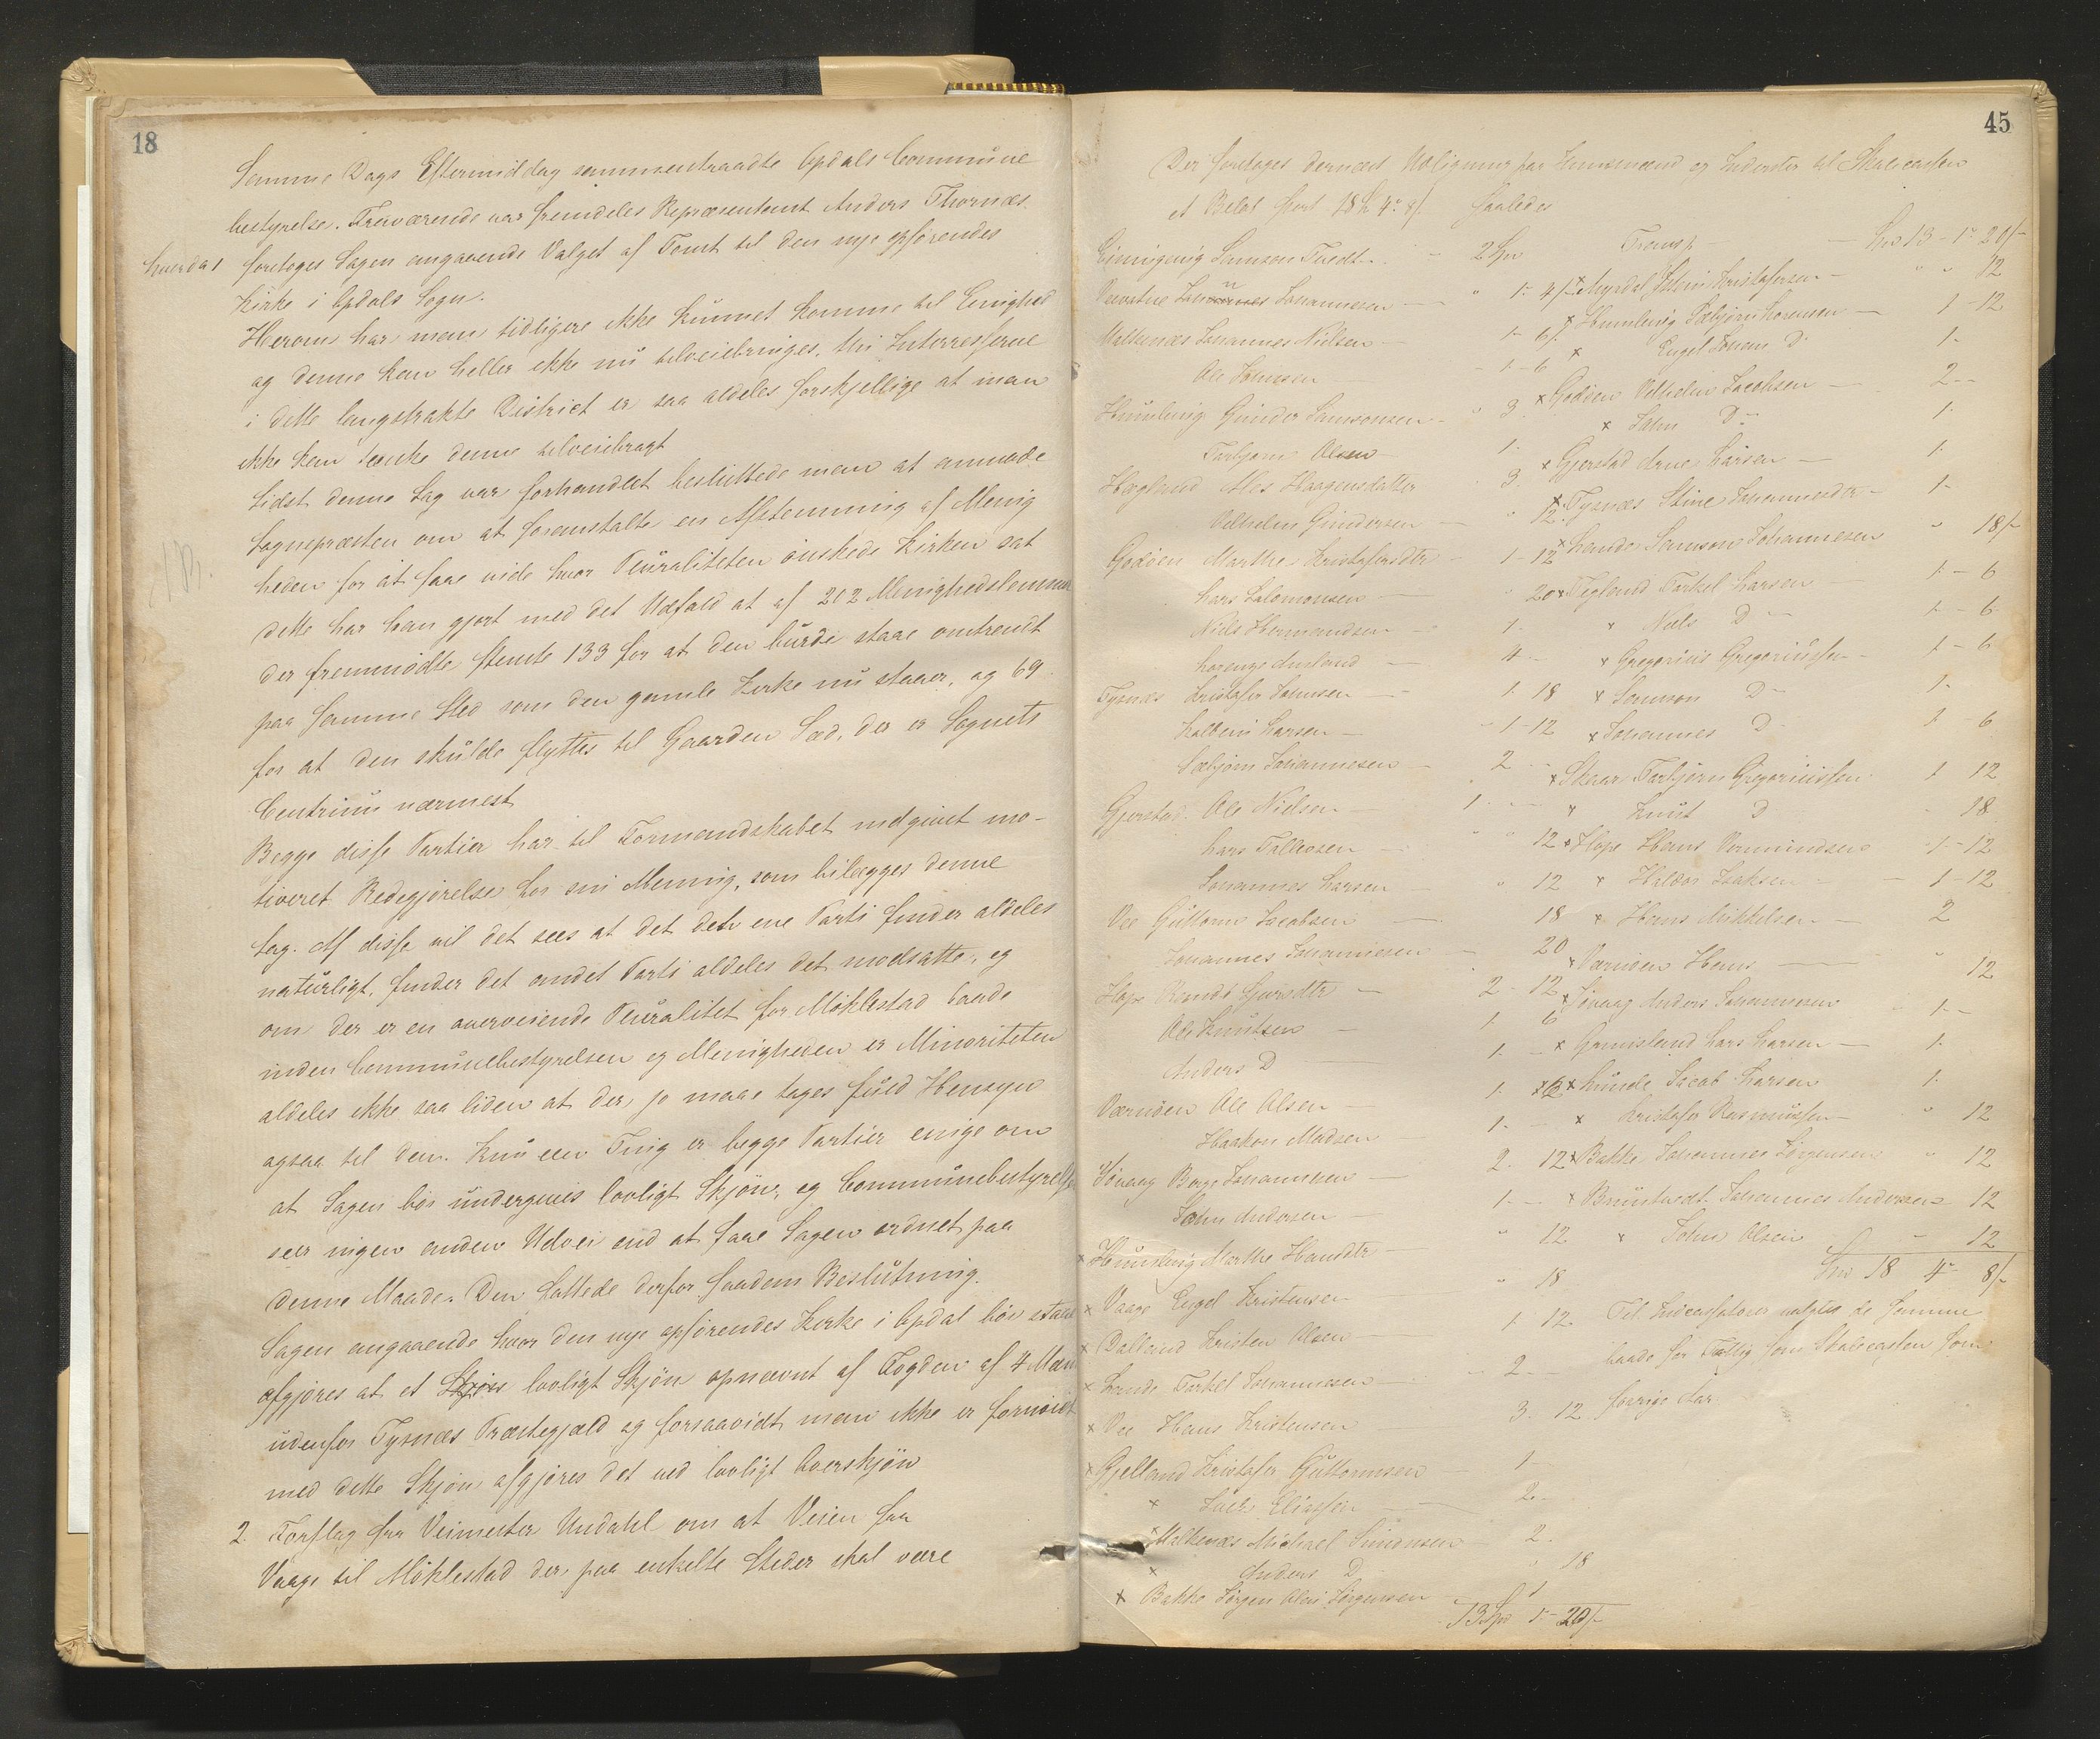 18
Samme Dags Eftermiddag sammentraadte Opdals Commune
bestyrelse. Fraværende var fremdeles Repræsentant Anders Thornæs.
hvorda 1 foretoges Sagen angaaende Valget af Tomt til den nye opførendes
Kirke i Opdals Sogn.
Herom har man tidligere ikke kunnet komme til Enighed
og denne kan heller ikke nu tilveiebringes, thi Interresserne
i dette langstrakte District er saa aldeles forskjellige at man
ikke kan tænke denne tilveiebragt
Sidst denne Sag var forhandlet besluttede man at anmode
Sognepræsten om at foranstalte en Afstemning af Menig
heden for at faae vide hvor Pluraliteten ønskede Kirken sat
dette har han gjort med det Udfald at af 202 Menighedslemmer
der fremmødte stemte 133 for at den burde staae omtrendt
paa samme Sted som den gamle Kirke nu staaer, og 69
for at den skulde flyttes til Gaarden Sæd, der er Sognets
Centrum nærmest
Begge disse Partier har til Formandskabet indgivet mo-
tiveret Redegjørelse for sin Mening, som bilægges denne
Sag. Af disse vil det sees at det det ene Parti finder aldeles
naturligt, finder det andet Parti aldeles det modsatte, og
om der er en overveiende Pluralitet for Møklestad baade
inden Communebestyrelsen og Menigheden er Minoriteten
aldeles ikke saa liden at der jo maae tages fuld Hensyn
ogsaa til den. Kun een Ting er begge Partier enige om
at Sagen bør undergives lovligt Skjøn, og Communebestyrelsen
seer ingen anden Udvei end at faae Sagen ordnet paa
denne Maade. Den fattede derfor saadan Beslutning.
Sagen angaaende hvor den nye opførendes Kirke i Opdal bør staae
afgjøres at et lovligt Skjøn opnævnt af Fogden af 4 Mæn
udenfor Tysnæs Præstegjæld og forsaavidt man ikke er fornøiet
med dette Skjøn afgjøres det ved lovligt Overskjøn
2. Forslag fra Veimester Undahl om at Veien fra
Vaage til Møklestad der paa enkelte Steder skal være
45
Der foretoges dernæst Udligning paa Huusmænd og Inderster til Skolecasten
et Beløb stort 18 4 8/. saaledes
Samson Tvedt 2 Spr
Johannesen 1- 4/
Malkenæs Johannes Nielsen 1- 6/
Ole Johnsen 1- 6
Humlevig Gunder Samsonsen 3
Torbjørn Olsen 1-
Hægland Ales Haagensdatter 3.
Vilhelm Gundersen 12
Godøen Marthe Kristofersdtr 1-12
Lars Salomonsen 20
Niels Hermandsen 1-
Lorenze 4
Tysnæs Kristofer Johnsen 1- 18
Larsen 1-12
Sæbjørn Johannesen 2
Gjerstad Ole Nielsen 1
Lars Tollevsen 12
Johannes Larsen 12
Vee Guttorm Jacobsen 18
Johannes Johannesen 20
Hope Gursdtr 2- 12
Ole Knutsen 1 6
Anders D 1.
Værnøen Ole Olsen 1.
Haakon Madsen 1.
Høvaag Børge Johannesen 2. 12
John Andersen 1.
x Humlevig Marthe Hansdtr 12
x Vaage Engel Kristensen 18
x Dalland Kristen Olsen 1 12
x Lande Torkel Johannesen 2
x Vee Hans Kristensen 3. 12
x Gjelland Kristofer Guttormsen 1
x Eliassen 2
x Malkenæs Michael Simonsen 2
x Anders D 18
x Bakke Jørgen Olai Jørgensen 1
13 Spr 1- 20/-
Transp Spr 13 - 1- 20/-
x Myrdal Kristofersen 12
x Humlevig Sæbjørn Lorensen 1-12
x Engel Johan D 1-
x Godøen Vilhelm Jacobsen 2
x John D 1-
x Gjerstad Arne Larsen 1-
x Tysnæs Stine Johannesdtr 1-
x Lande Samson Johannesen 18/-
x Tegland Torkel Larsen 1- 6
x Nils D 1- 6
x Gregorius Gregoriussen 1- 6
x Samson D 1-
x Johannes D 1- 6
x Skaar Torbjørn Gregoriussen 1 12
x Knut D 18
x Hope Hans Vermundsen 1-12
x Haldor Isaksen 1-12
x Hans Mikkelsen 2
x Værnøen Hans 12
x Høvaag Anders Johannesen 1-
x Grimsland Lars Larsen 1.
x Lunde Jacob Larsen 1.
x Kristofer Rasmussen 12
x Bakke Johannes Jørgensen 12
x Bruntvedt Johannes Andersen 12
x John Olsen 12
Spr 18 4- 8/-
Til Indcassatorer valgtes de samme
baade for Fattig som Skolecasten som
forrige Aar